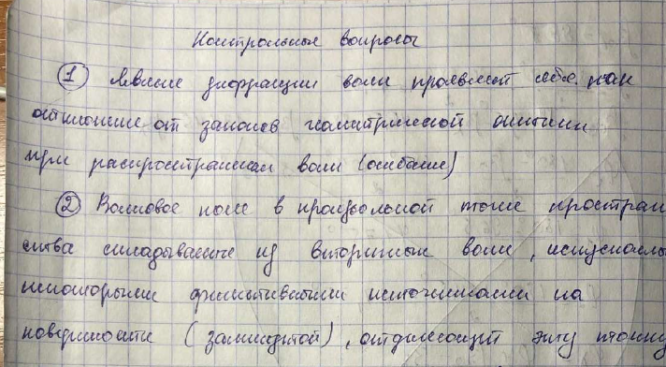 Контрольные вопросы
① Явление дифракции волн проявляет себя как
отклонение от законов геометрической оптики
при распространении волн (огибание)
② Волновое поле в произвольной точке простран
ства складывается из вторичных волн, испускаемы
некоторыми фиктивными источниками на
поверхности (замкнутой), отделяющей эту точку